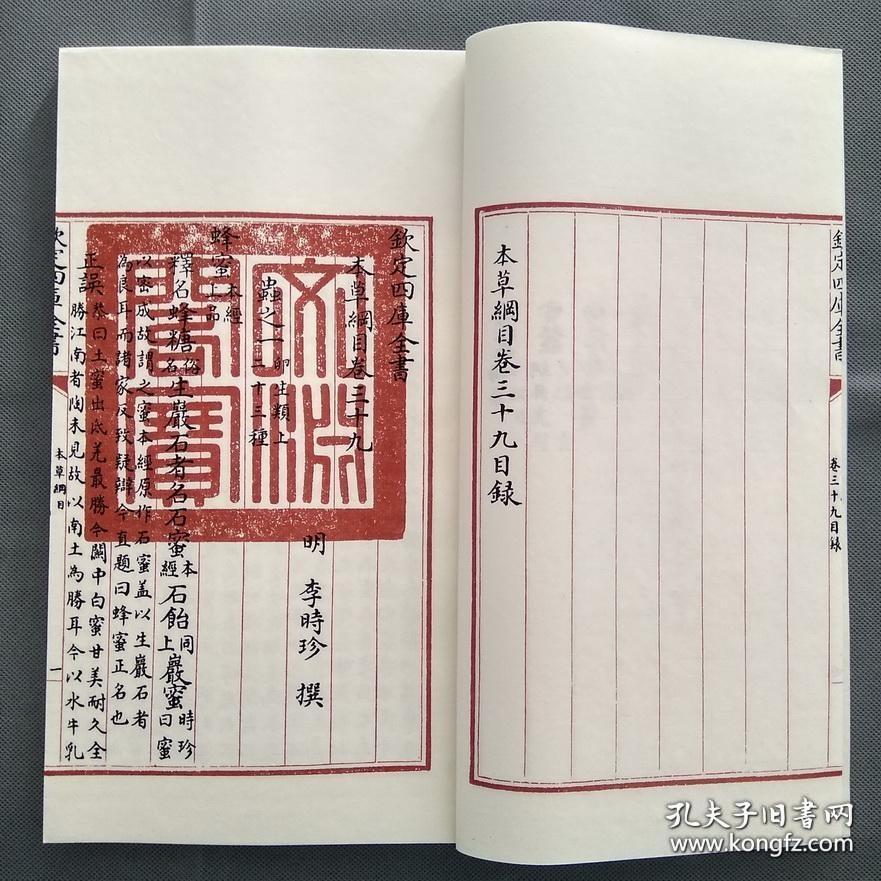 欽定四庫全書
卷三十九目録
本草綱目卷三十九目録
欽定四庫全書
本草綱目卷三十九
明 李時珍 撰
蟲之一 卵生類上
二十三種
蜂蜜 本經
上品
釋名 蜂糖 俗名 生巖石者名石蜜 本經 石飴 同上 巖蜜 時珍曰蜜
以密成故謂之蜜本經原作石蜜盖以生巖石者
為良耳而諸家反致疑辯今直題曰蜂蜜正名也
正誤 恭曰土蜜出氐羌最勝今關中白蜜甘美耐久全
勝江南者陶未見故以南土為勝耳今以水牛乳
欽定四庫全書
本草綱目
一
文淵閣寶
孔夫子旧书网
www.kongfz.com